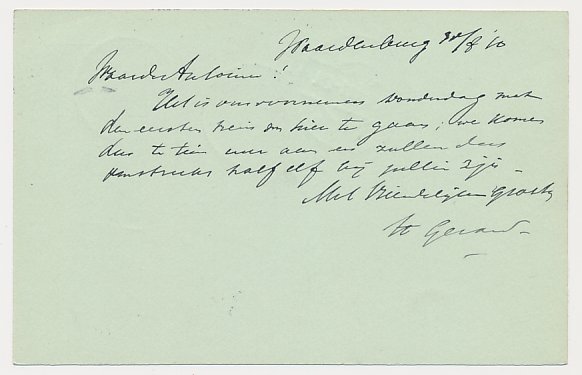 Waardenburg 30/8 '10
Waarde Antoine!
Het is ons voornemen donderdag met
den eersten trein van hier te gaan; we komen
dus te tien uur aan en zullen dus
omstreeks half elf bij jullie zijn.
Met Vriendelijken Groet,
Gerard